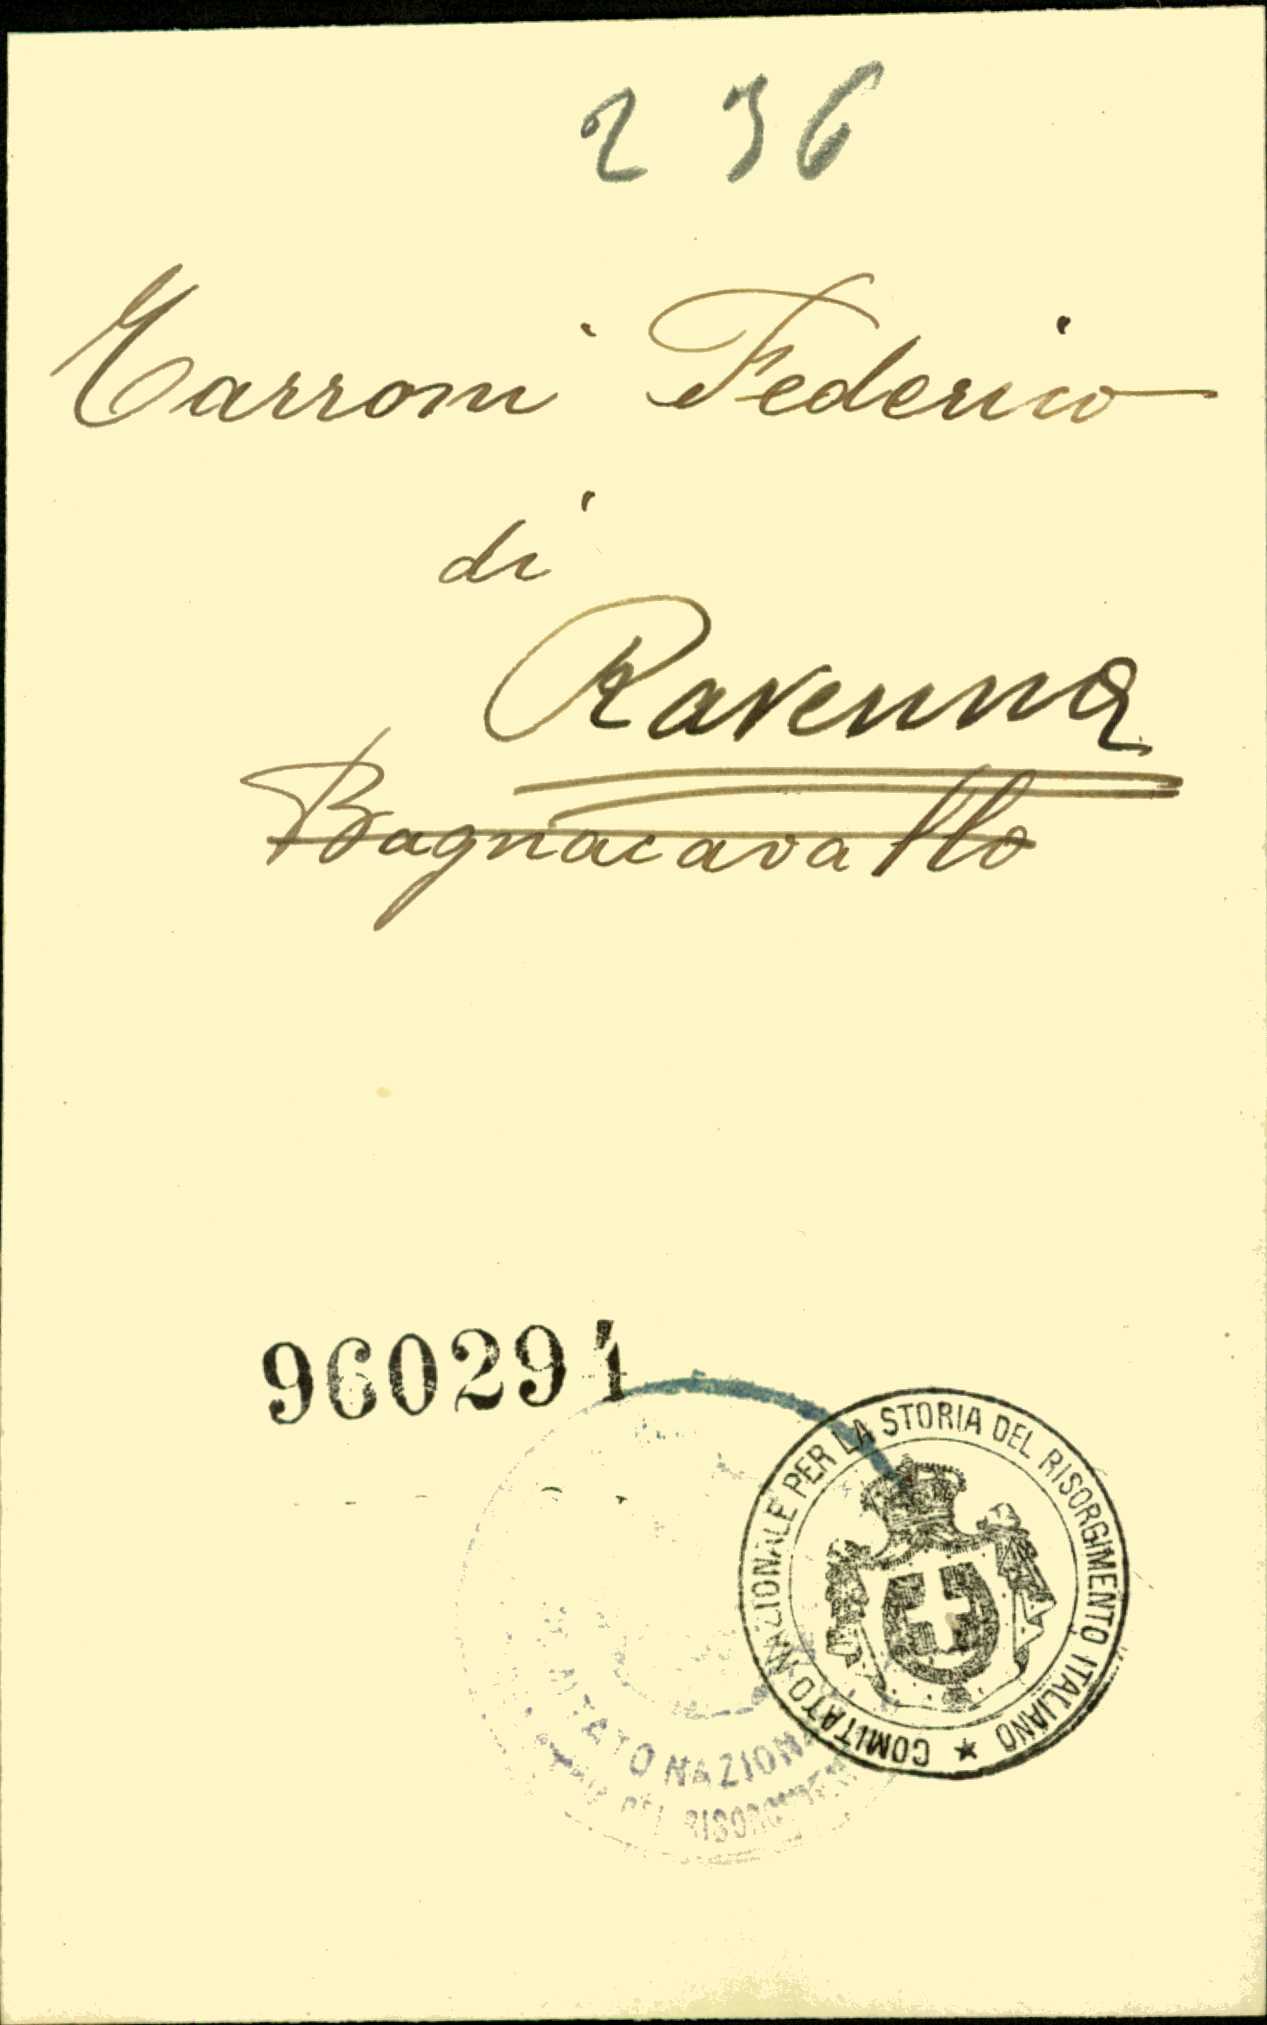 236
Tarroni Federico
di
Ravenna
Bagnacavallo
960291
COMITATO NAZIONALE PER LA STORIA DEL RISORGIMENTO ITALIANO
NAZION
DEL RISORGIMEN